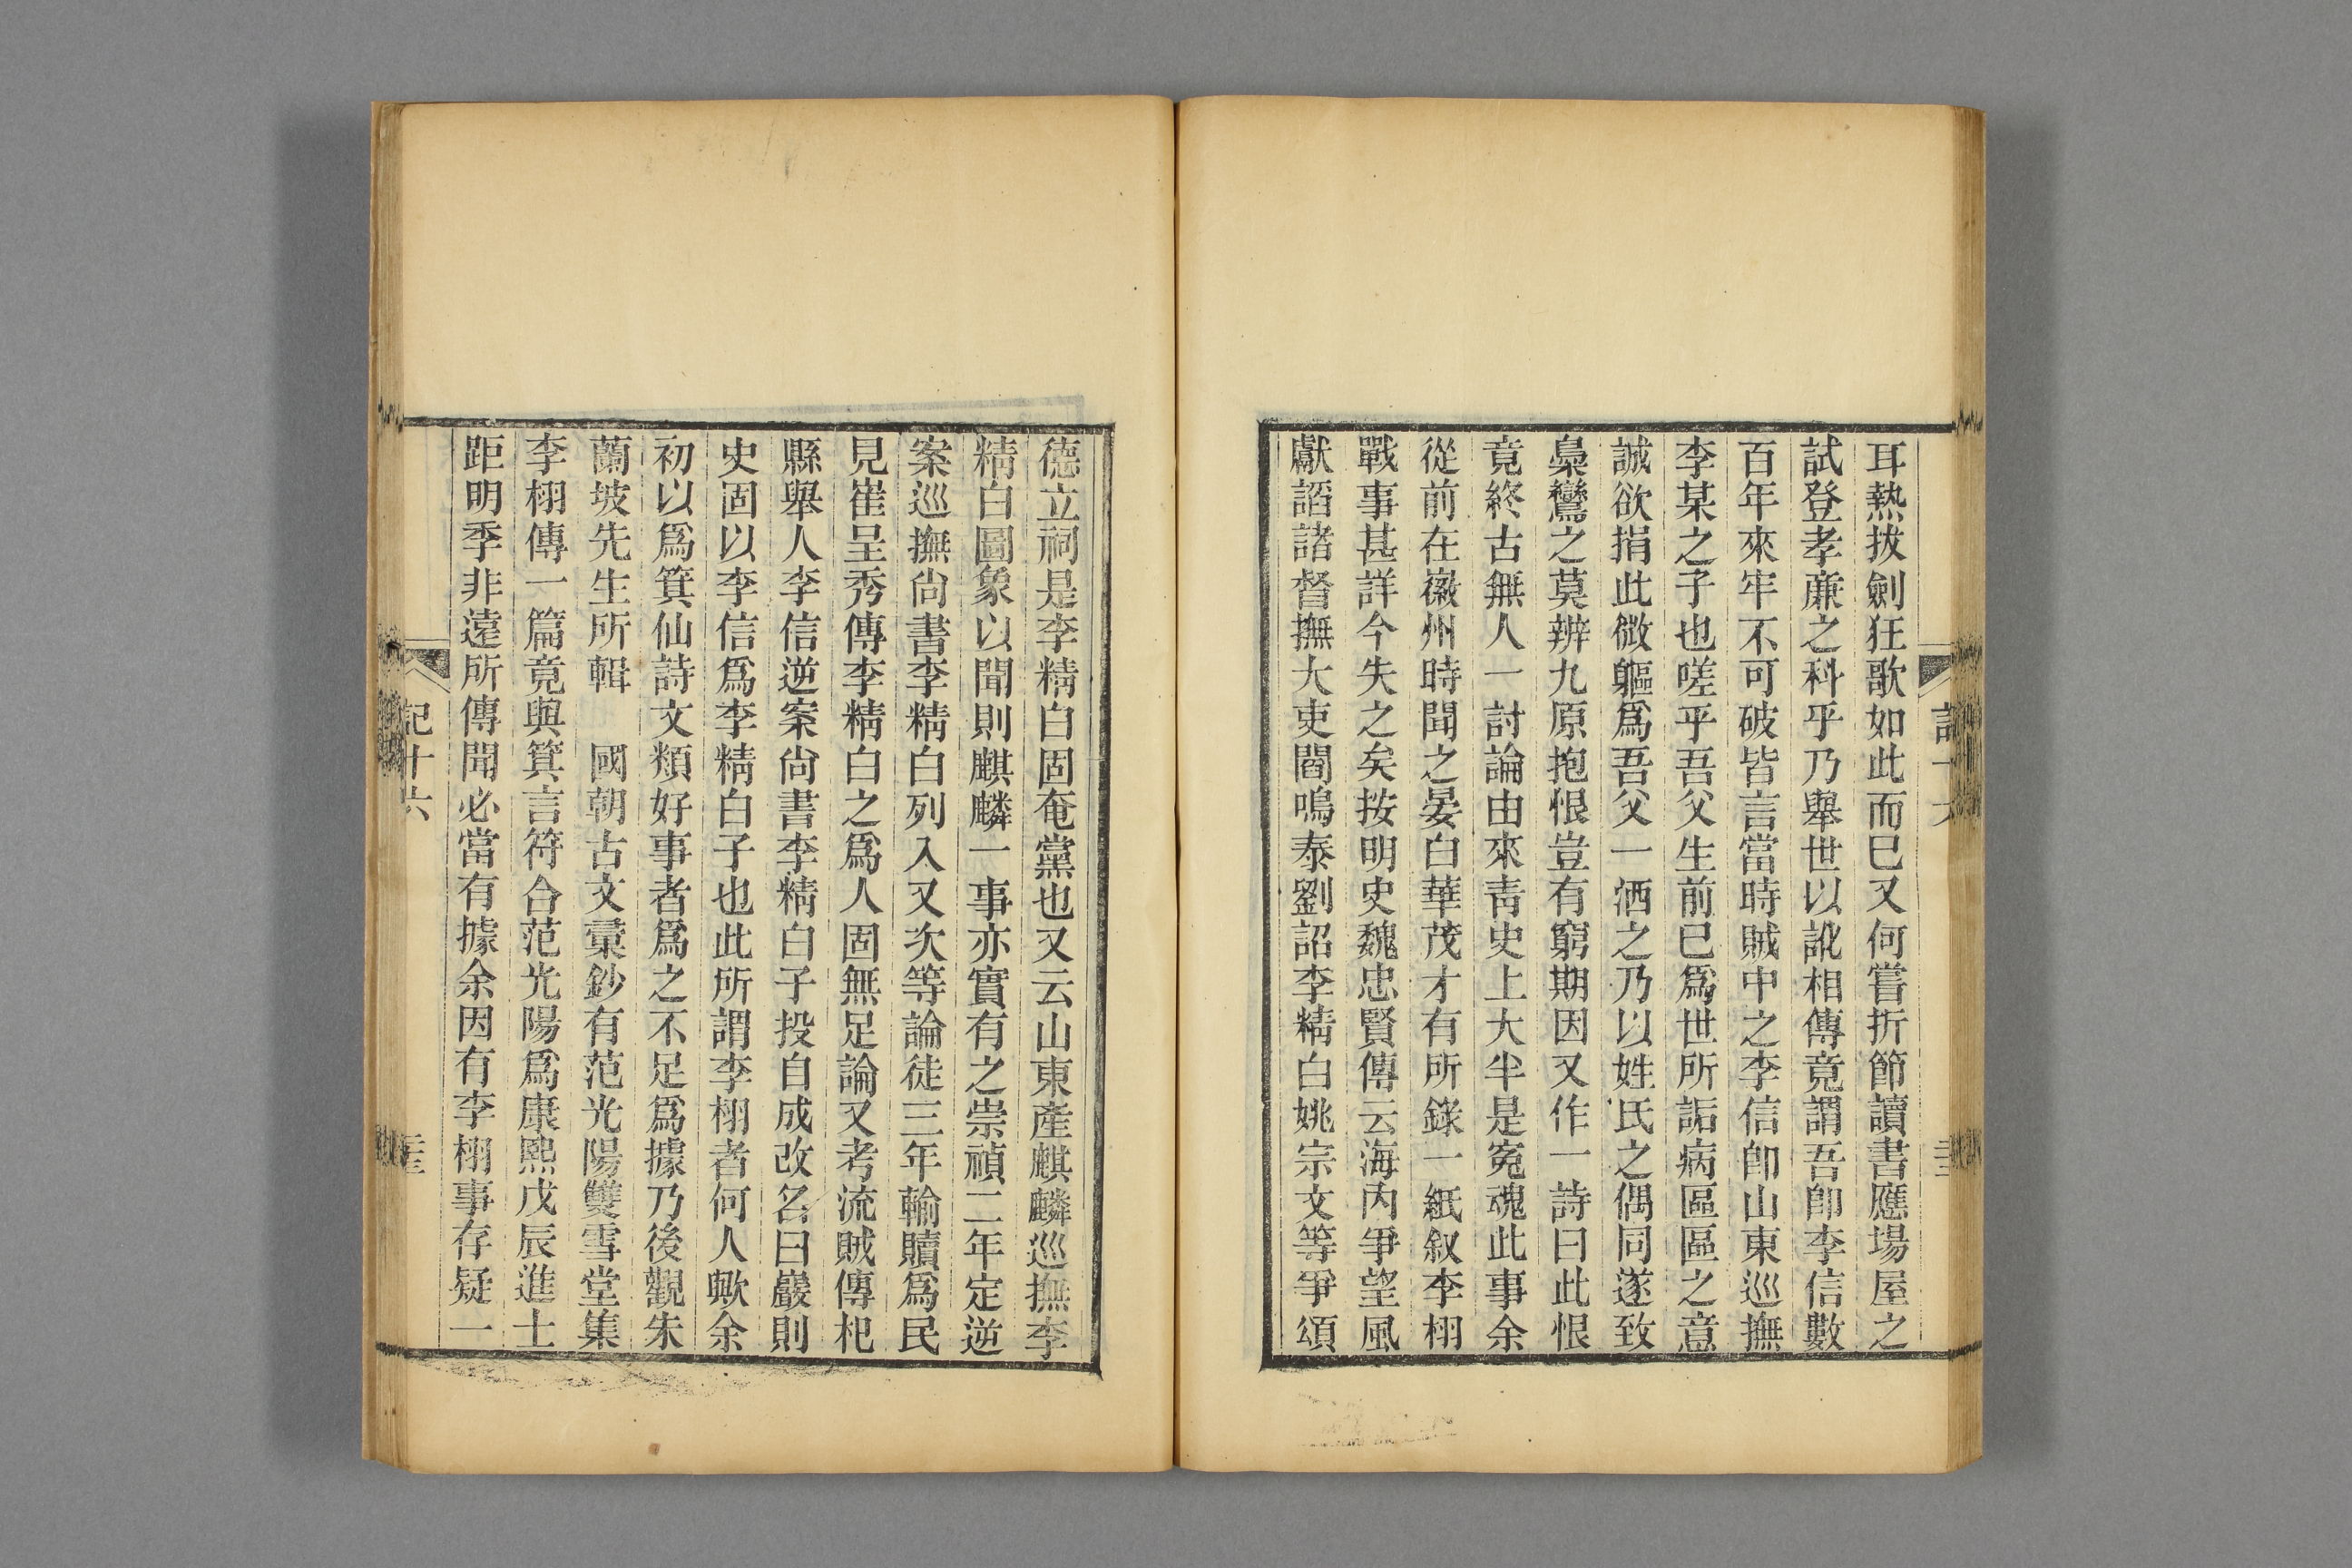 耳熱拔劍狂歌如此而巳又何嘗折節讀書應場屋之
試登孝廉之科乎乃舉世以訛相傳竟謂吾卽李信數
百年來牢不可破皆言當時賊中之李信卽山東巡撫
李某之子也嗟乎吾父生前巳爲世所詬病區區之意
誠欲捐此微軀爲吾父一洒之乃以姓氏之偶同遂致
梟鸞之莫辨九原抱恨豈有窮期因又作一詩曰此恨
竟終古無人一討論由來青史上大半是冤魂此事余
從前在徽州時聞之晏白華茂才有所錄一紙叙李栩
戰事甚詳今失之矣按明史魏忠賢傳云海內爭望風
獻諂諸督撫大吏閻鳴泰劉詔李精白姚宗文等爭頌
德立祠是李精白固奄黨也又云山東產麒麟巡撫李
精白圖象以聞則麒麟一事亦實有之崇禎二年定逆
案巡撫尙書李精白列入又次等論徒三年輸贖爲民
見崔呈秀傳李精白之爲人固無足論又考流賊傳杞
縣舉人李信逆案尙書李精白子投自成改名曰巖則
史固以李信爲李精白子也此所謂李栩者何人歟余
初以爲箕仙詩文類好事者爲之不足爲據乃後觀朱
蘭坡先生所輯　國朝古文彙鈔有范光陽雙雪堂集
李栩傳一篇竟與箕言符合范光陽爲康熙戊辰進士
距明季非遠所傳聞必當有據余因有李栩事存疑一
記十六